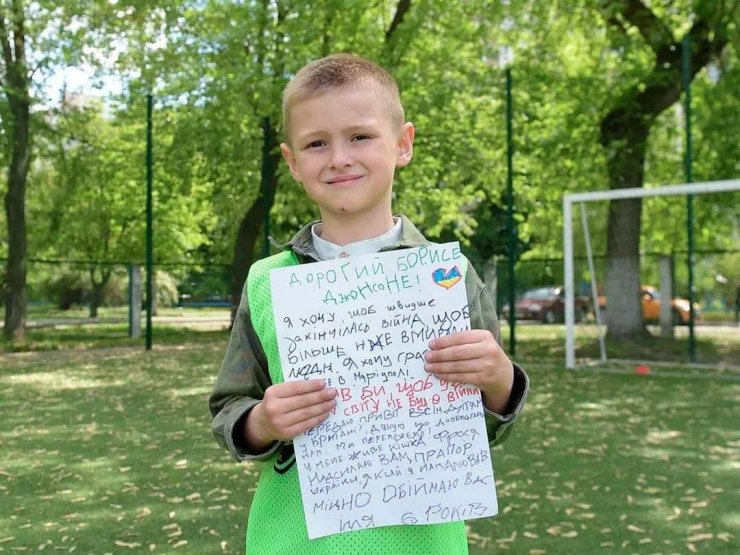 ДОРОГИЙ БОРИСЕ
ДЖОНСОНЕ!
Я ХОЧУ, ЩОБ ШВИДШЕ
ЗАКІНЧИЛАСЬ ВІЙНА ЩОБ
БІЛЬШЕ НЕ ВМИРАЛИ
ЛЮДИ. Я ХОЧУ
В МАРІУПОЛІ.
В БИ, ЩОБ У
СВІТУ НЕ БУЛО ВІЙНИ
ПЕРЕДАЮ ПРИВІТ ВСІМ ДІТЯМ
У БРИТАНІЇ, ДЯКУЮ ЩО
НАМ. МИ ПЕРЕМОЖЕМО!
У МЕНЕ ЖИВЕ КІШКА ФРОСЯ
НАДСИЛАЮ ВАМ ПРАПОР
УКРАЇНИ, ЯКИЙ Я НАМАЛЮВАВ
МІЦНО ОБІЙМАЮ ВАС
ІЛЛЯ 6 РОКІВ